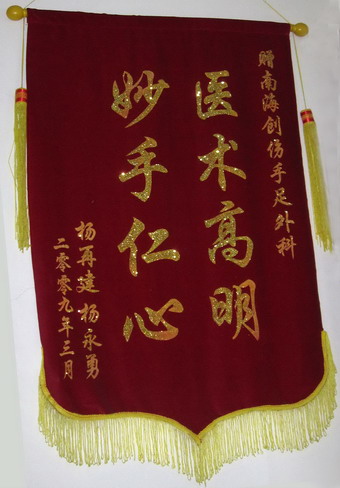 赠南海创伤手足外科
医术高明
妙手仁心
杨再建 杨永勇
二零零九年三月